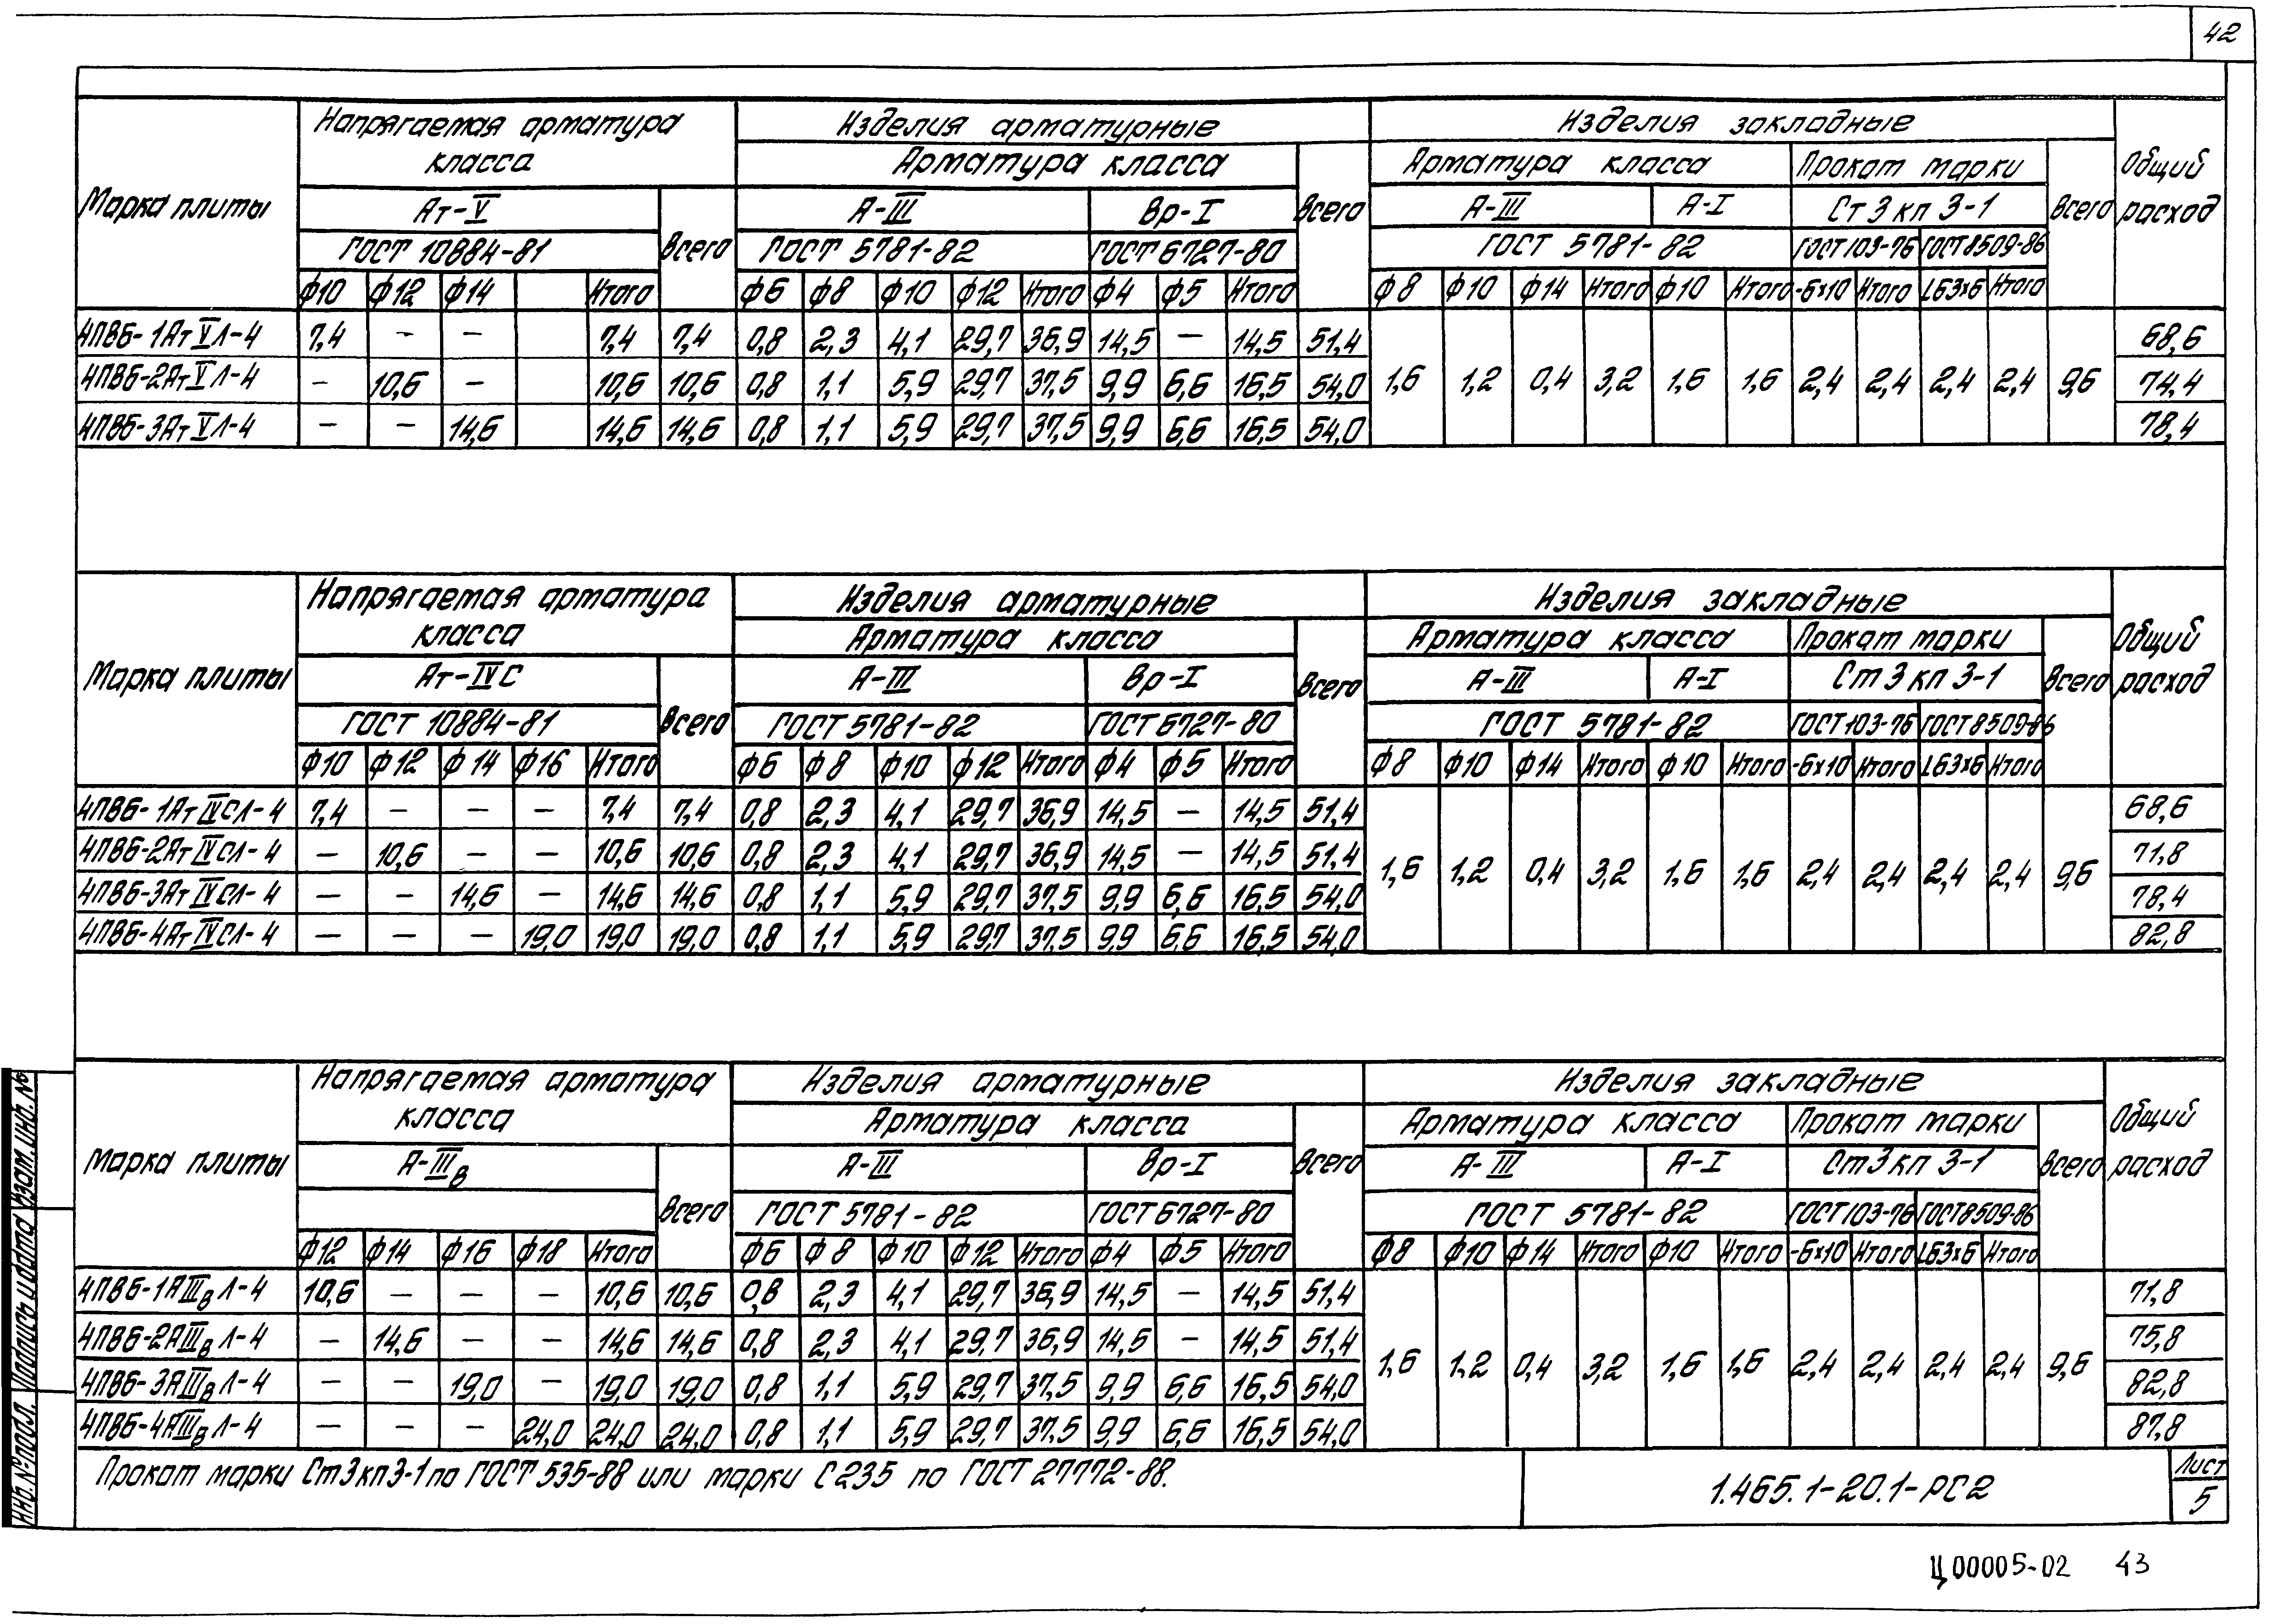 42
Марка плиты | Напрягаемая арматура класса | Изделия арматурные | Изделия закладные | Общий расход
Арматура класса | Всего | Арматура класса | Прокат марки | Всего
Ат-V | Всего | А-III | Вр-I | А-III | А-I | Ст3кп3-1
ГОСТ 10884-81 | ГОСТ 5781-82 | ГОСТ 6727-80 | ГОСТ 5781-82 | ГОСТ 103-76 | ГОСТ 8509-86
ф10 | ф12 | ф14 | | Итого | ф6 | ф8 | ф10 | ф12 | Итого | ф4 | ф5 | Итого | ф8 | ф10 | ф14 | Итого | ф10 | Итого | -6х10 | Итого | L63х6 | Итого
4ПВ6-1АтVЛ-4 | 7,4 | – | – | | 7,4 | 7,4 | 0,8 | 2,3 | 4,1 | 29,7 | 36,9 | 14,5 | – | 14,5 | 51,4 | 68,6
4ПВ6-2АтVЛ-4 | – | 10,6 | – | | 10,6 | 10,6 | 0,8 | 1,1 | 5,9 | 29,7 | 37,5 | 9,9 | 6,6 | 16,5 | 54,0 | 1,6 | 1,2 | 0,4 | 3,2 | 1,6 | 1,6 | 2,4 | 2,4 | 2,4 | 2,4 | 9,6 | 74,4
4ПВ6-3АтVЛ-4 | – | – | 14,6 | | 14,6 | 14,6 | 0,8 | 1,1 | 5,9 | 29,7 | 37,5 | 9,9 | 6,6 | 16,5 | 54,0 | 78,4
Марка плиты | Напрягаемая арматура класса | Изделия арматурные | Изделия закладные | Общий расход
Арматура класса | Всего | Арматура класса | Прокат марки | Всего
Ат-IVС | Всего | А-III | Вр-I | А-III | А-I | Ст3кп3-1
ГОСТ 10884-81 | ГОСТ 5781-82 | ГОСТ 6727-80 | ГОСТ 5781-82 | ГОСТ 103-76 | ГОСТ 8509-86
ф10 | ф12 | ф14 | ф16 | Итого | ф6 | ф8 | ф10 | ф12 | Итого | ф4 | ф5 | Итого | ф8 | ф10 | ф14 | Итого | ф10 | Итого | -6х10 | Итого | L63х6 | Итого
4ПВ6-1АтIVСЛ-4 | 7,4 | – | – | – | 7,4 | 7,4 | 0,8 | 2,3 | 4,1 | 29,7 | 36,9 | 14,5 | – | 14,5 | 51,4 | 68,6
4ПВ6-2АтIVСЛ-4 | – | 10,6 | – | – | 10,6 | 10,6 | 0,8 | 2,3 | 4,1 | 29,7 | 36,9 | 14,5 | – | 14,5 | 51,4 | 71,8
4ПВ6-3АтIVСЛ-4 | – | – | 14,6 | – | 14,6 | 14,6 | 0,8 | 1,1 | 5,9 | 29,7 | 37,5 | 9,9 | 6,6 | 16,5 | 54,0 | 1,6 | 1,2 | 0,4 | 3,2 | 1,6 | 1,6 | 2,4 | 2,4 | 2,4 | 2,4 | 9,6 | 78,4
4ПВ6-4АтIVСЛ-4 | – | – | – | 19,0 | 19,0 | 19,0 | 0,8 | 1,1 | 5,9 | 29,7 | 37,5 | 9,9 | 6,6 | 16,5 | 54,0 | 82,8
Марка плиты | Напрягаемая арматура класса | Изделия арматурные | Изделия закладные | Общий расход
Арматура класса | Всего | Арматура класса | Прокат марки | Всего
А-IIIв | Всего | А-III | Вр-I | А-III | А-I | Ст3кп3-1
ГОСТ 5781-82 | ГОСТ 6727-80 | ГОСТ 5781-82 | ГОСТ 103-76 | ГОСТ 8509-86
ф12 | ф14 | ф16 | ф18 | Итого | ф6 | ф8 | ф10 | ф12 | Итого | ф4 | ф5 | Итого | ф8 | ф10 | ф14 | Итого | ф10 | Итого | -6х10 | Итого | L63х6 | Итого
4ПВ6-1АIIIвЛ-4 | 10,6 | – | – | – | 10,6 | 10,6 | 0,8 | 2,3 | 4,1 | 29,7 | 36,9 | 14,5 | – | 14,5 | 51,4 | 71,8
4ПВ6-2АIIIвЛ-4 | – | 14,6 | – | – | 14,6 | 14,6 | 0,8 | 2,3 | 4,1 | 29,7 | 36,9 | 14,5 | – | 14,5 | 51,4 | 75,8
4ПВ6-3АIIIвЛ-4 | – | – | 19,0 | – | 19,0 | 19,0 | 0,8 | 1,1 | 5,9 | 29,7 | 37,5 | 9,9 | 6,6 | 16,5 | 54,0 | 1,6 | 1,2 | 0,4 | 3,2 | 1,6 | 1,6 | 2,4 | 2,4 | 2,4 | 2,4 | 9,6 | 82,8
4ПВ6-4АIIIвЛ-4 | – | – | – | 24,0 | 24,0 | 24,0 | 0,8 | 1,1 | 5,9 | 29,7 | 37,5 | 9,9 | 6,6 | 16,5 | 54,0 | 87,8
Прокат марки Ст3кп3-1 по ГОСТ 535-88 или марки С235 по ГОСТ 27772-88.
1.465.1-20.1-РС2
Лист
5
Инв.№подл. Подпись и дата Взам.инв.№
Ц00005-02 43